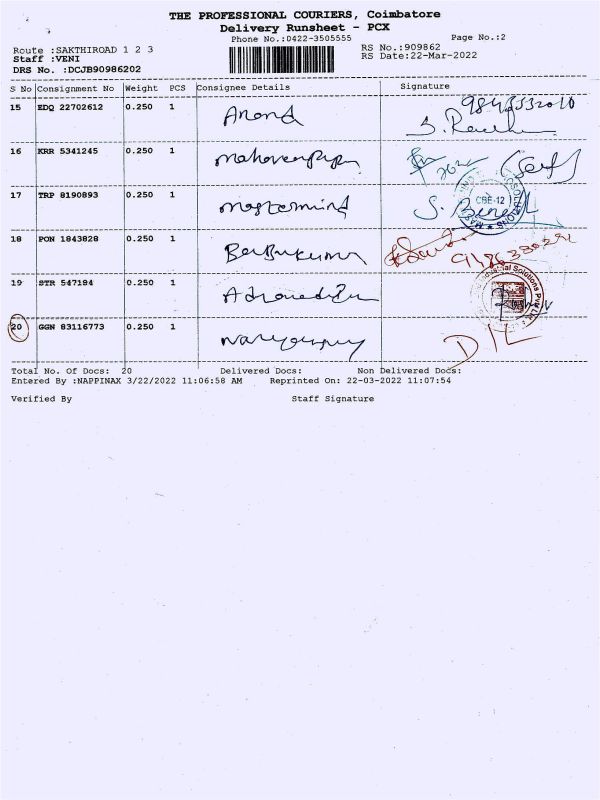 THE PROFESSIONAL COURIERS, Coimbatore
Delivery Runsheet - PCX
Phone No.:0422-3505555 Page No.:2
Route :SAKTHIROAD 1 2 3 RS No.:909862
Staff :VENI RS Date:22-Mar-2022
DRS No. :DCJB90986202
S No Consignment No Weight PCS Consignee Details Signature
15 EDQ 22702612 0.250 1 Anand
16 KRR 5341245 0.250 1
17 TRP 8190893 0.250 1 mastermind
CBE-12
18 PON 1843828 0.250 1
19 STR 547184 0.250 1
20 GGN 83116773 0.250 1 D/L
Total No. Of Docs: 20 Delivered Docs: Non Delivered Docs:
Entered By :NAPPINAX 3/22/2022 11:06:58 AM Reprinted On: 22-03-2022 11:07:54
Verified By Staff Signature